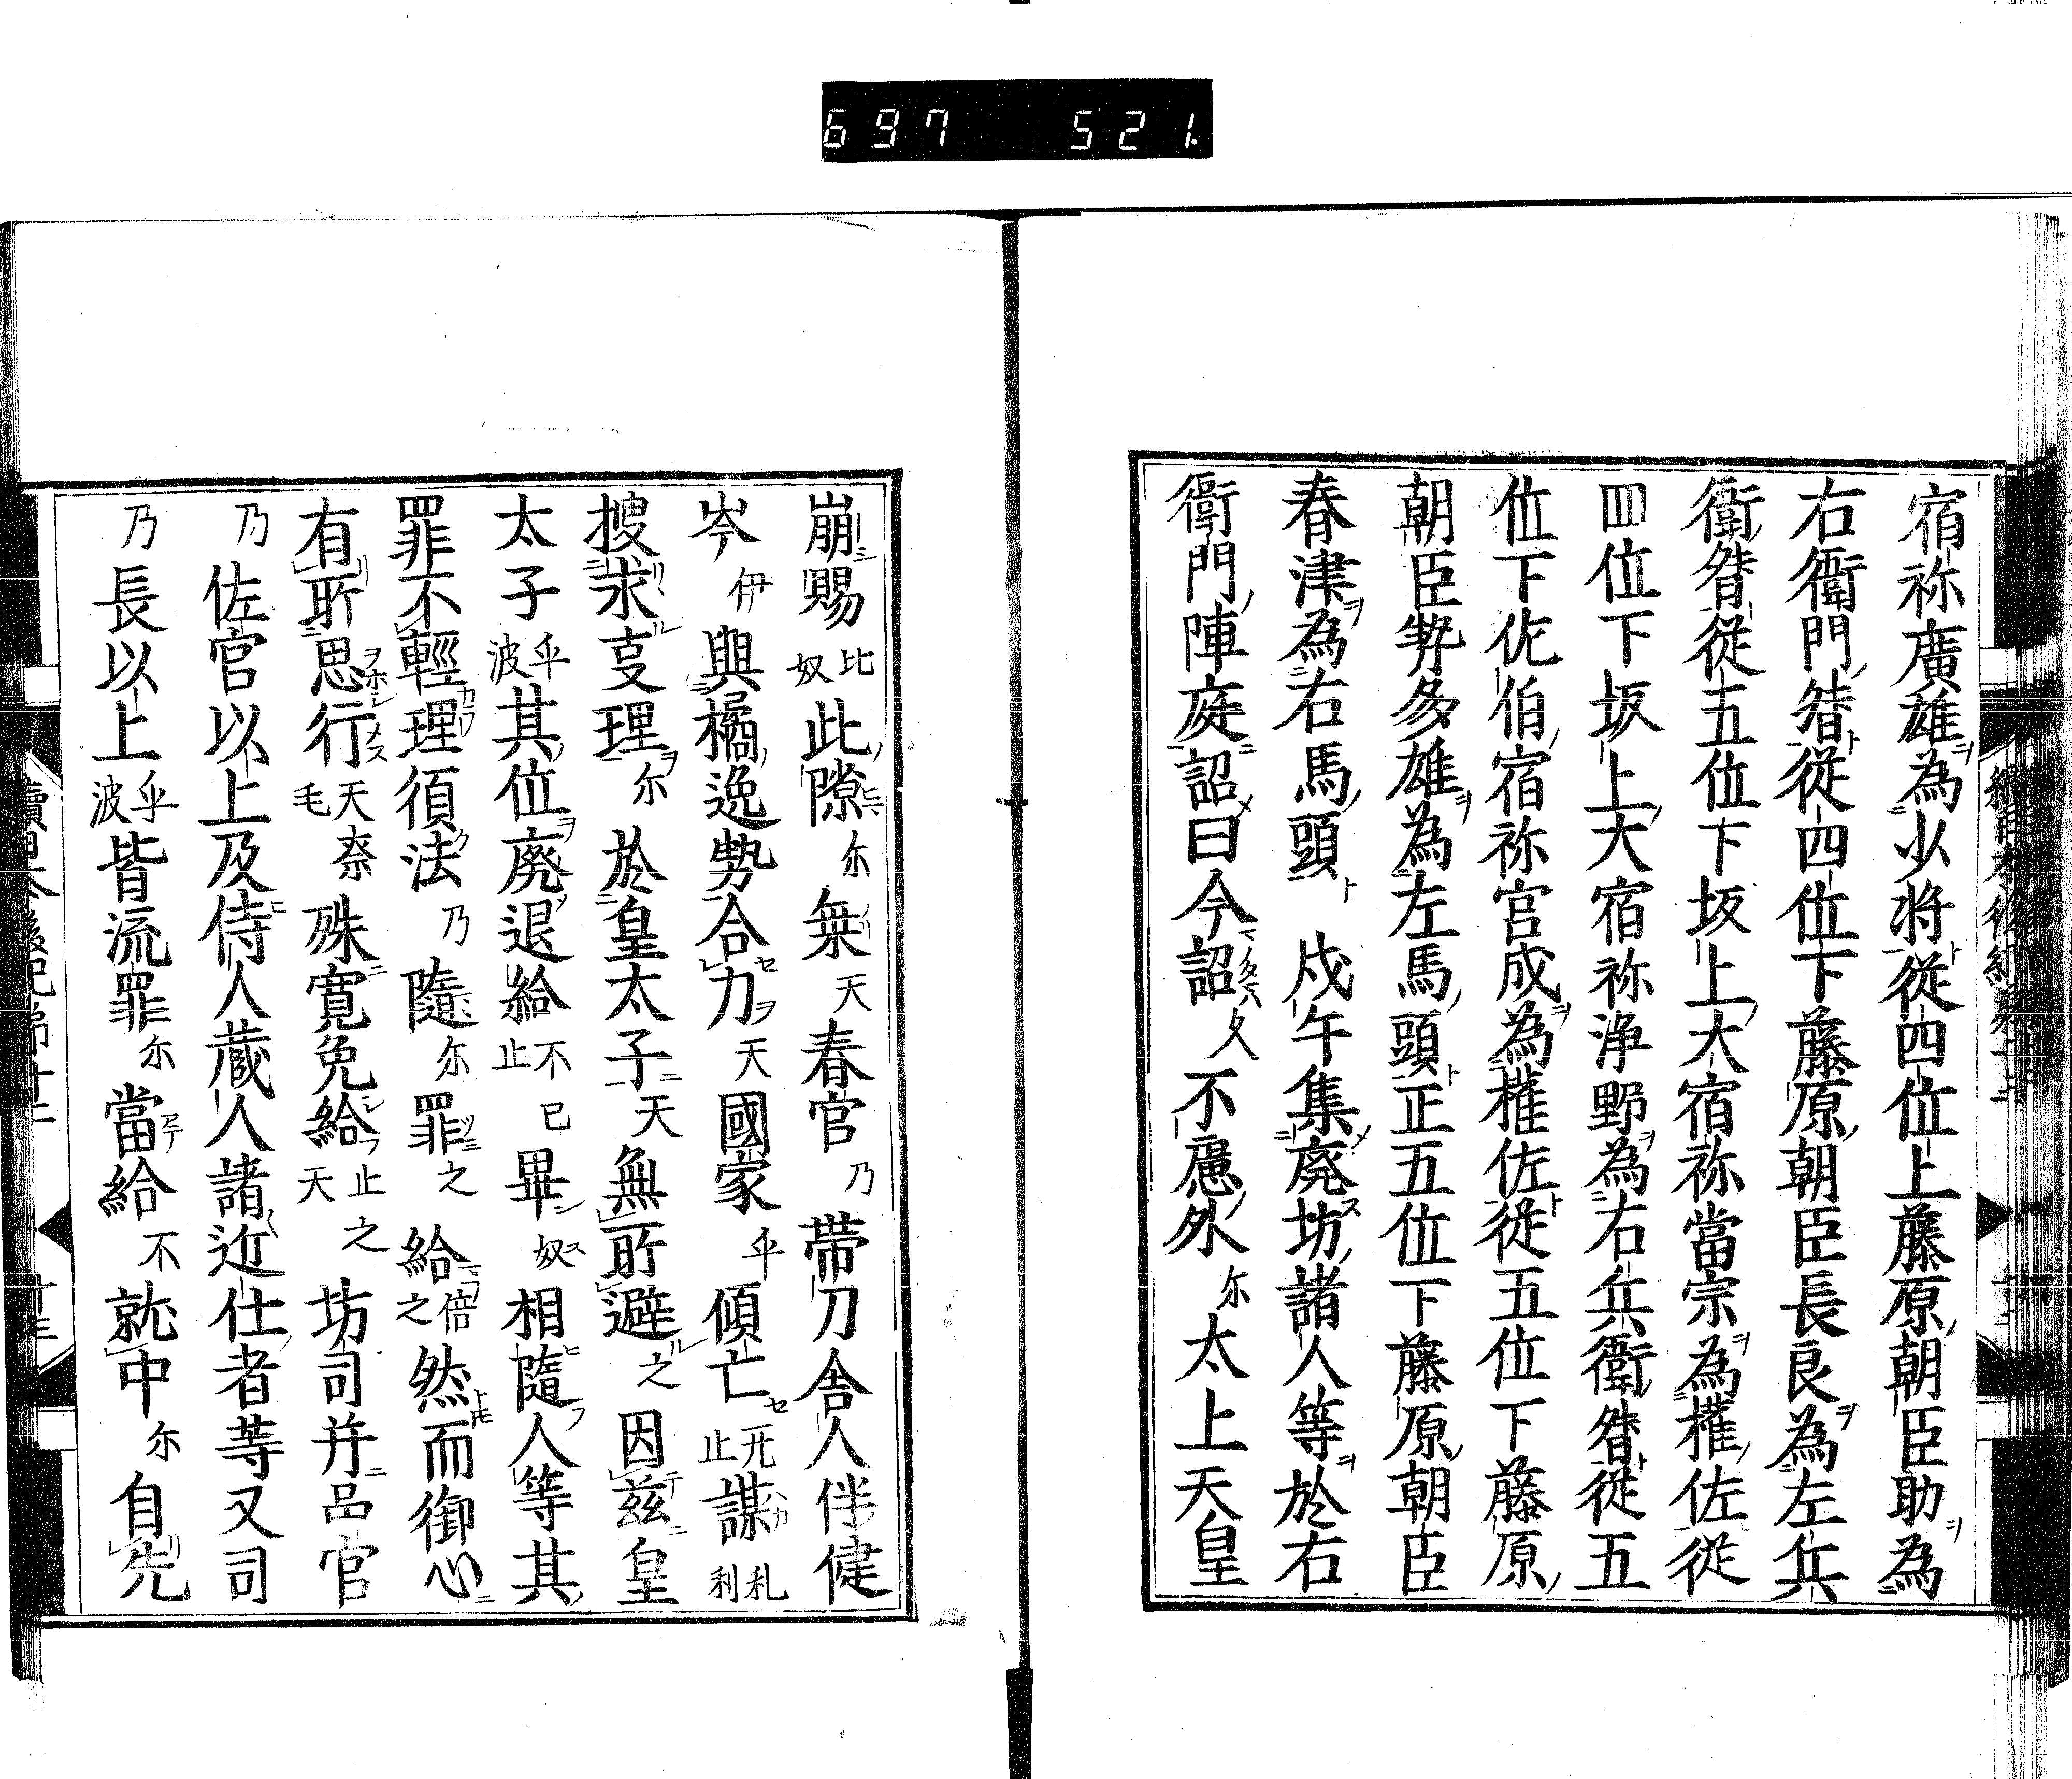 697 521.
宿祢廣雄為少将從四位上藤原朝臣助為
右衛門督從四位下藤原朝臣長良為左兵
衛督從五位下坂上大宿祢當宗為權佐從
四位下坂上大宿祢浄野為右兵衛督從五
位下佐伯宿祢宮成為權佐從五位下藤原
朝臣勢多雄為左馬頭正五位下藤原朝臣
春津為右馬頭 戍午集廃坊諸人等於右
衛門陣庭詔曰今詔久不慮外尓太上天皇
崩賜比奴此隙尓無天春宮乃帯刀舎人伴健
岑伊與橘逸勢合力天國家乎傾亡无止謀礼利
搜求支理尓於皇太子天無所避之因茲皇
太子乎波其位廃退給不止已畢奴相隨人等其
罪不輕理須法乃隨尓罪之給倍之然而御心
有所思行天毛奈殊寛免給止之天坊司并品官
乃佐官以上及侍人蔵人諸近仕者等又司
乃長以上乎波皆流罪尓當給不就中尓自先